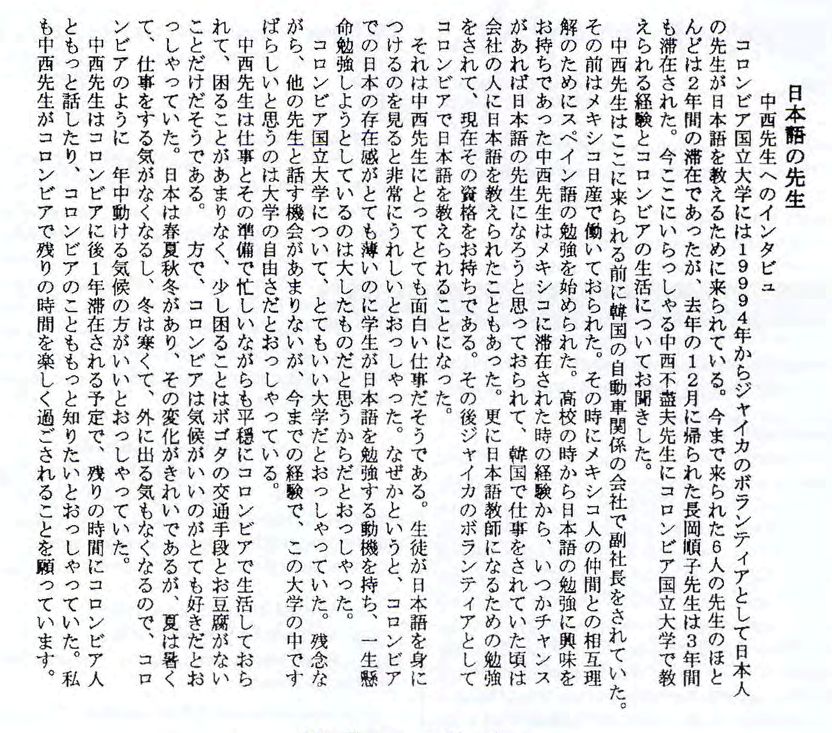 日本語の先生
中西先生へのインタビュ
コロンビア国立大学には19994年からジャイカのボランティアとして日本人
の先生が日本語を教えるために来られている。今まで来られた6人の先生のほと
んどは2年間の滞在であったが、去年の12月に帰られた長岡順子先生は3年間
も滞在された。今ここにいらっしゃる中西不盡夫先生にコロンビア国立大学で教
えられる経験とコロンビアの生活についてお聞きした。
中西先生はここに来られる前に韓国の自動車関係の会社で副社長をされていた。
その前はメキシコ日産で働いておられた。その時にメキシコ人の仲間との相互理
解のためにスペイン語の勉強を始められた。高校の時から日本語の勉強に興味を
お持ちであった中西先生はメキシコに滞在された時の経験から、いつかチャンス
があれば日本語の先生になろうと思っておられて、韓国で仕事をされていた頃は
会社の人に日本語を教えられたこともあった。更に日本語教師になるための勉強
をされて、現在その資格をお持ちである。その後ジャイカのボランティアとして
コロンビアで日本語を教えられることになった。
それは中西先生にとってとても面白い仕事だそうである。生徒が日本語を身に
つけるのを見ると非常にうれしいとおっしゃった。なぜかというと、コロンビア
での日本の存在感がとても薄いのに学生が日本語を勉強する動機を持ち、一生懸
命勉強しようとしているのは大したものだと思うからだとおっしゃった。
コロンビア国立大学について、とてもいい大学だとおっしゃっていた。残念な
がら、他の先生と話す機会があまりないが、今までの経験で、この大学の中です
ばらしいと思うのは大学の自由さだとおっしゃっている。
中西先生は仕事とその準備で忙しいながらも平穏にコロンビアで生活しておら
れて、困ることがあまりなく、少し困ることはボゴタの交通手段とお豆腐がない
ことだけだそうである。 方で、コロンビアは気候がいいのがとても好きだとお
っしゃっていた。日本は春夏秋冬があり、その変化がきれいであるが、夏は暑く
て、仕事をする気がなくなるし、冬は寒くて、外に出る気もなくなるので、コロ
ンビアのように 年中動ける気候の方がいいとおっしゃっていた。
中西先生はコロンビアに後1年滞在される予定で、残りの時間にコロンビア人
ともっと話したり、コロンビアのことももっと知りたいとおっしゃっていた。私
も中西先生がコロンビアで残りの時間を楽しく過ごされることを願っています。